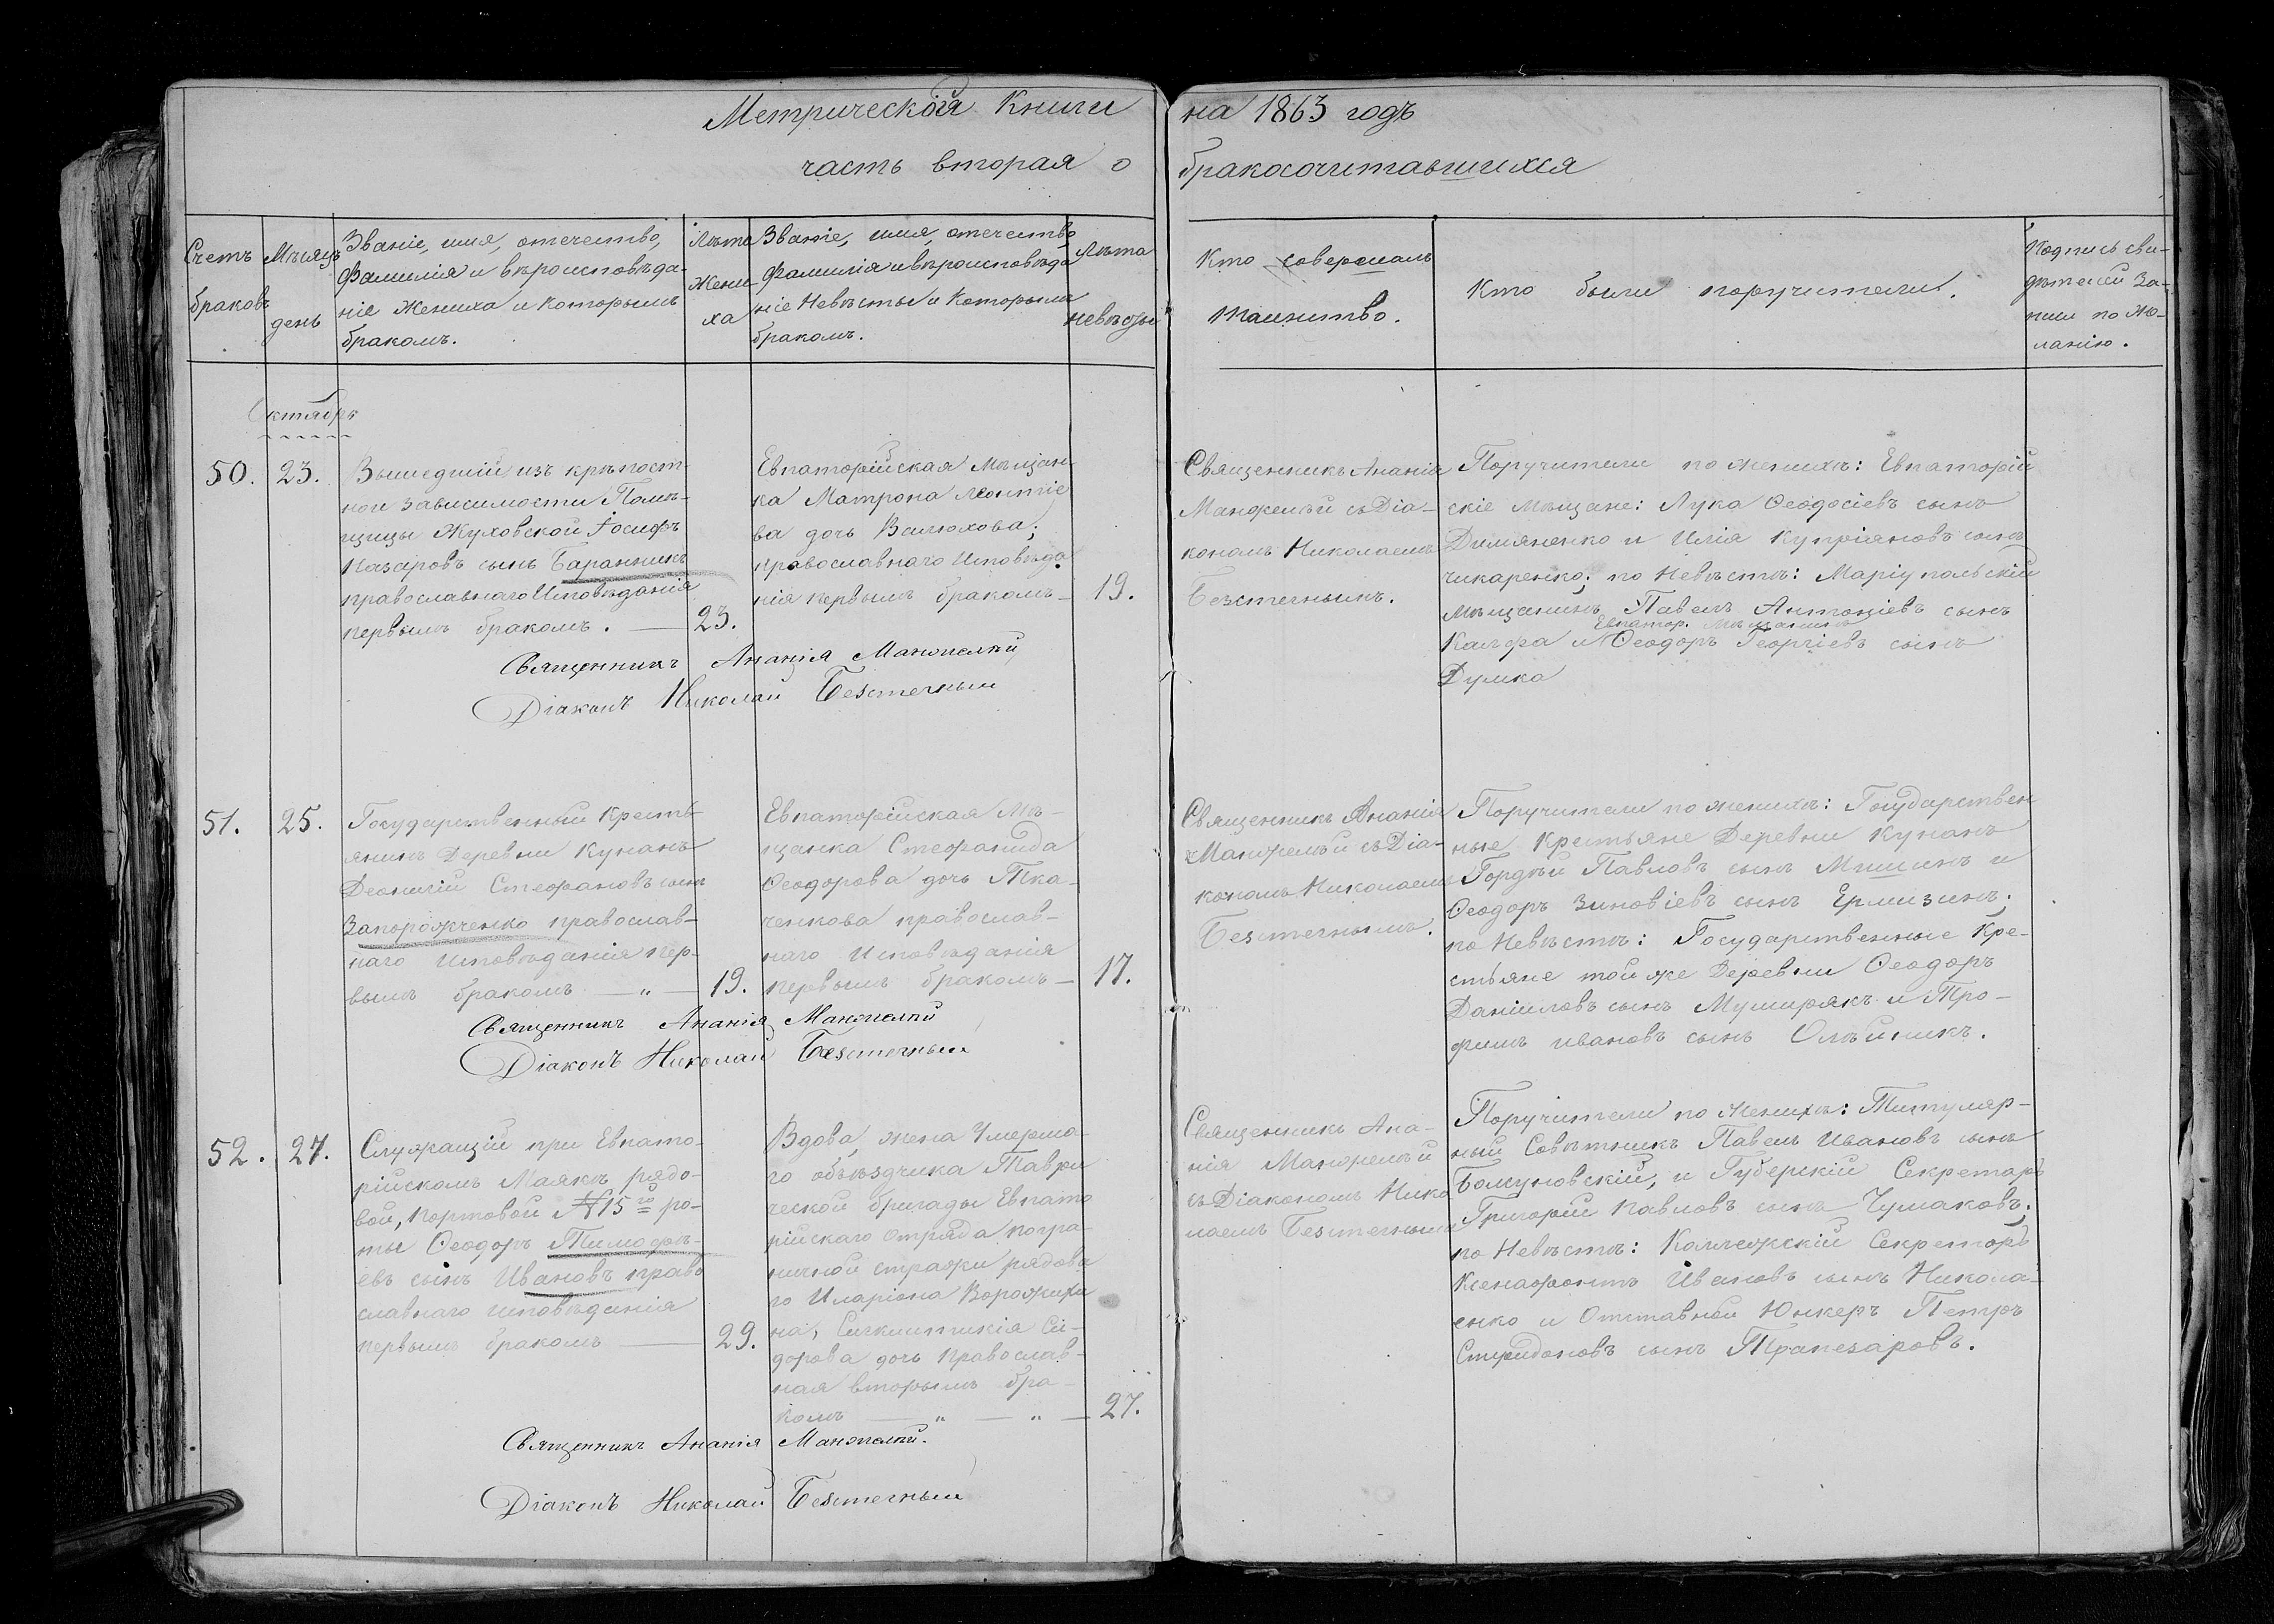 Метрической Книги на 1863 годъ
часть вторая о бракосочитавшихся
Счетъ
браковъ
Мѣсяцъ
день
Званіе, имя, отечество,
фамилія и вѣроисповѣда-
ніе Жениха и Которымъ
бракомъ.
Лѣта
Жени
ха
Званіе, имя, отечество,
фамилія и вѣроисповѣда
ніе Невѣсты и Которымъ
бракомъ.
Лѣта
невѣсты
Кто совершалъ
таинство.
Кто были поручители.
Подпись сви-
дѣтелей За-
писи по Же-
ланію.
Октябрь
50.
23.
Вышедшій изъ крѣпост-
ной зависимости Помѣ-
щицы Жуховской Іосифъ
Назаровъ сынъ Баранникъ
православнаго Исповѣданія
первымъ бракомъ. —
23.
Евпаторійская Мѣщан-
ка Матрона Леонтіе
ва дочь Валюхова;
православнаго Исповѣда
нія первымъ бракомъ —
19.
Священникъ Ананія
Манжелѣй съ Діа-
кономъ Николаемъ
Безстечнымъ.
Поручители по женихѣ: Евпаторій
скіе Мѣщане: Лука Ѳеодосіевъ сынъ
Димяненко и Илія Купріяновъ сынъ
Чикаренко; по Невѣстѣ: Маріупольскій
мѣщанинъ Павелъ Антоніевъ сынъ
Евпатор. Мѣщанинъ
Калфа и Ѳеодоръ Георгіевъ сынъ
Думка
Священникъ Ананія Манжелѣй
Діаконъ Николай Безстечный
51.
25.
Государственный Кресть-
янинъ Деревни Кунанъ
Деонисій Стефановъ сынъ
Запорожченко православ-
наго Исповѣданія пер-
вымъ бракомъ — „ —
19.
Евпаторійская Мѣ-
щанка Стефанида
Ѳеодорова дочь Тка-
ченкова православ-
наго Исповѣданія
первымъ бракомъ —
17.
Священникъ Ананія
Манжелѣй съ Діа-
кономъ Николаемъ
Безстечнымъ.
Поручители по женихѣ: Государствен
ные Крестьяне Деревни Кунанъ
Гордѣй Павловъ сынъ Мишинъ и
Ѳеодоръ Зиновіевъ сынъ Ермизинъ;
по Невѣстѣ: Государственные Кре-
стьяне той же Деревни Ѳеодоръ
Даніиловъ сынъ Мушрякъ и Тро-
фимъ Ивановъ сынъ Олѣйникъ.
Священникъ Ананія Манжелѣй
Діаконъ Николай Безстечный
52.
27.
Служащій при Евпато-
рійскомъ Маякѣ рядо-
вой, портовой № 15й ро-
ты Ѳеодоръ Тимоѳѣ-
евъ сынъ Ивановъ право
славнаго исповѣданія
первымъ бракомъ —
29.
Вдова, жена Умерша-
го объѣздчика Таври
ческой бригады Евпато
рійскаго отряда погра-
ничной стражи рядова
го Иларіона Ворожики
на, Сигклитикія Си-
дорова дочь Православ-
ная вторымъ бра-
комъ — „ — „ —
27.
Священникъ Ана-
нія Манжелѣй
съ Діакономъ Нико
лаемъ Безстечнымъ
Поручители по Женихѣ: Титуляр-
ный Совѣтникъ Павелъ Ивановъ сынъ
Бомуновскій, и Губерскій Секретарь
Григорій Павловъ сынъ Чумаковъ;
по Невѣстѣ: Коллежскій Секретарь
Ксенафонтъ Ивановъ сынъ Никола-
енко и Отставной Юнкеръ Петръ
Спиридоновъ сынъ Трапезаровъ.
Священникъ Ананія Манжелѣй.
Діаконъ Николай Безстечный